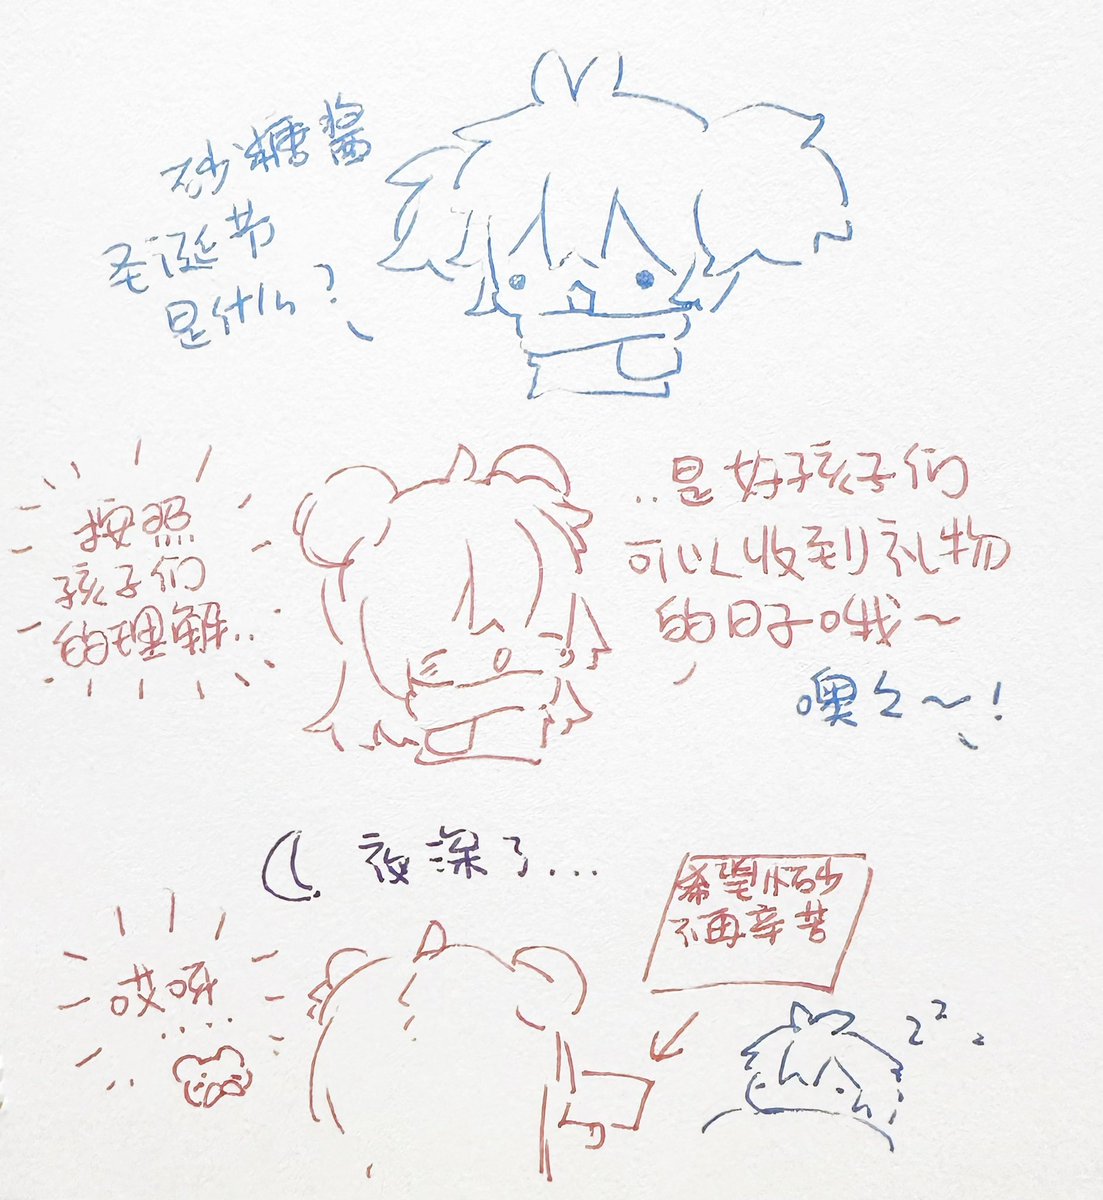 砂糖酱
圣诞节
是什么？
按照
孩子们
的理解..
..是好孩子们
可以收到礼物
的日子哦～
噢々～！
夜深了...
希望怪砂
不再辛苦
哎呀
....
zz